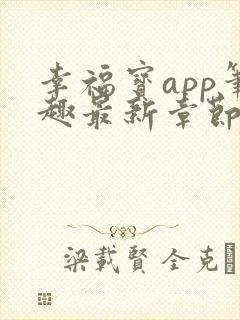 幸福寳app筆
趣最新章節
梁載賢 全克